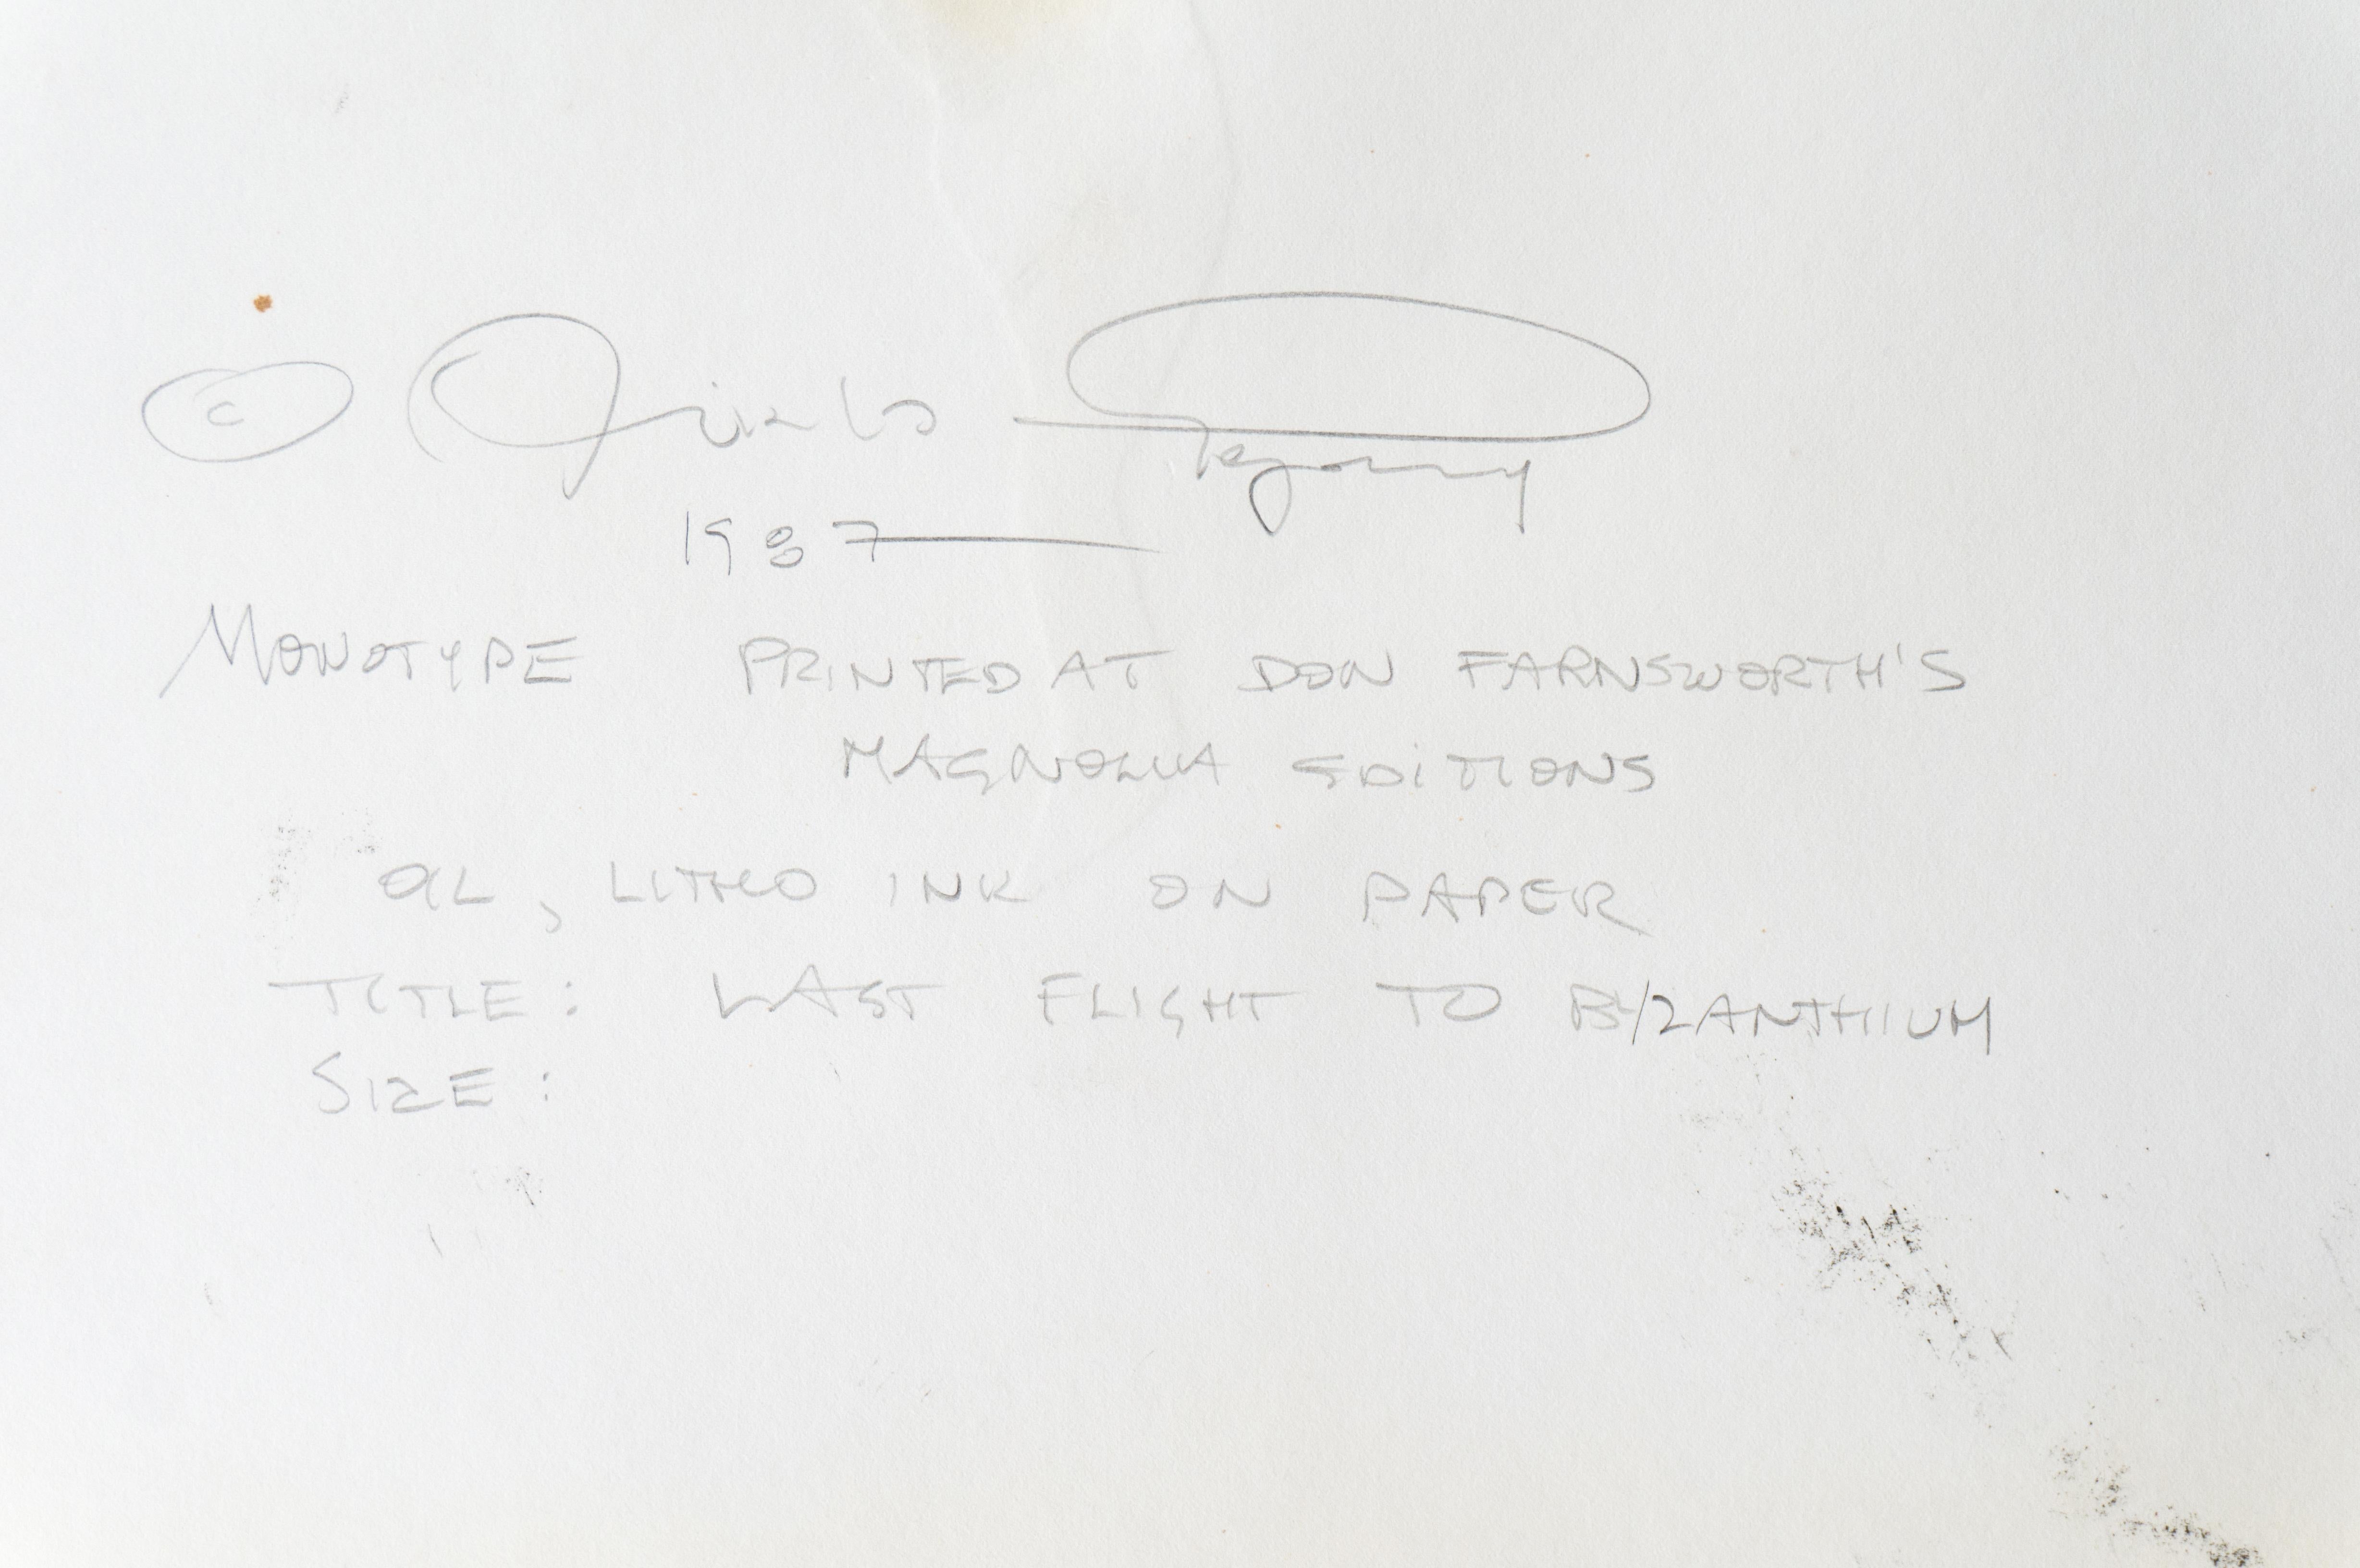 ©
1987
MONOTYPE PRINTED AT DON FARNSWORTH'S
MAGNOLIA EDITIONS
OIL, LITHO INK ON PAPER
TITLE: LAST FLIGHT TO BYZANTHIUM
SIZE: